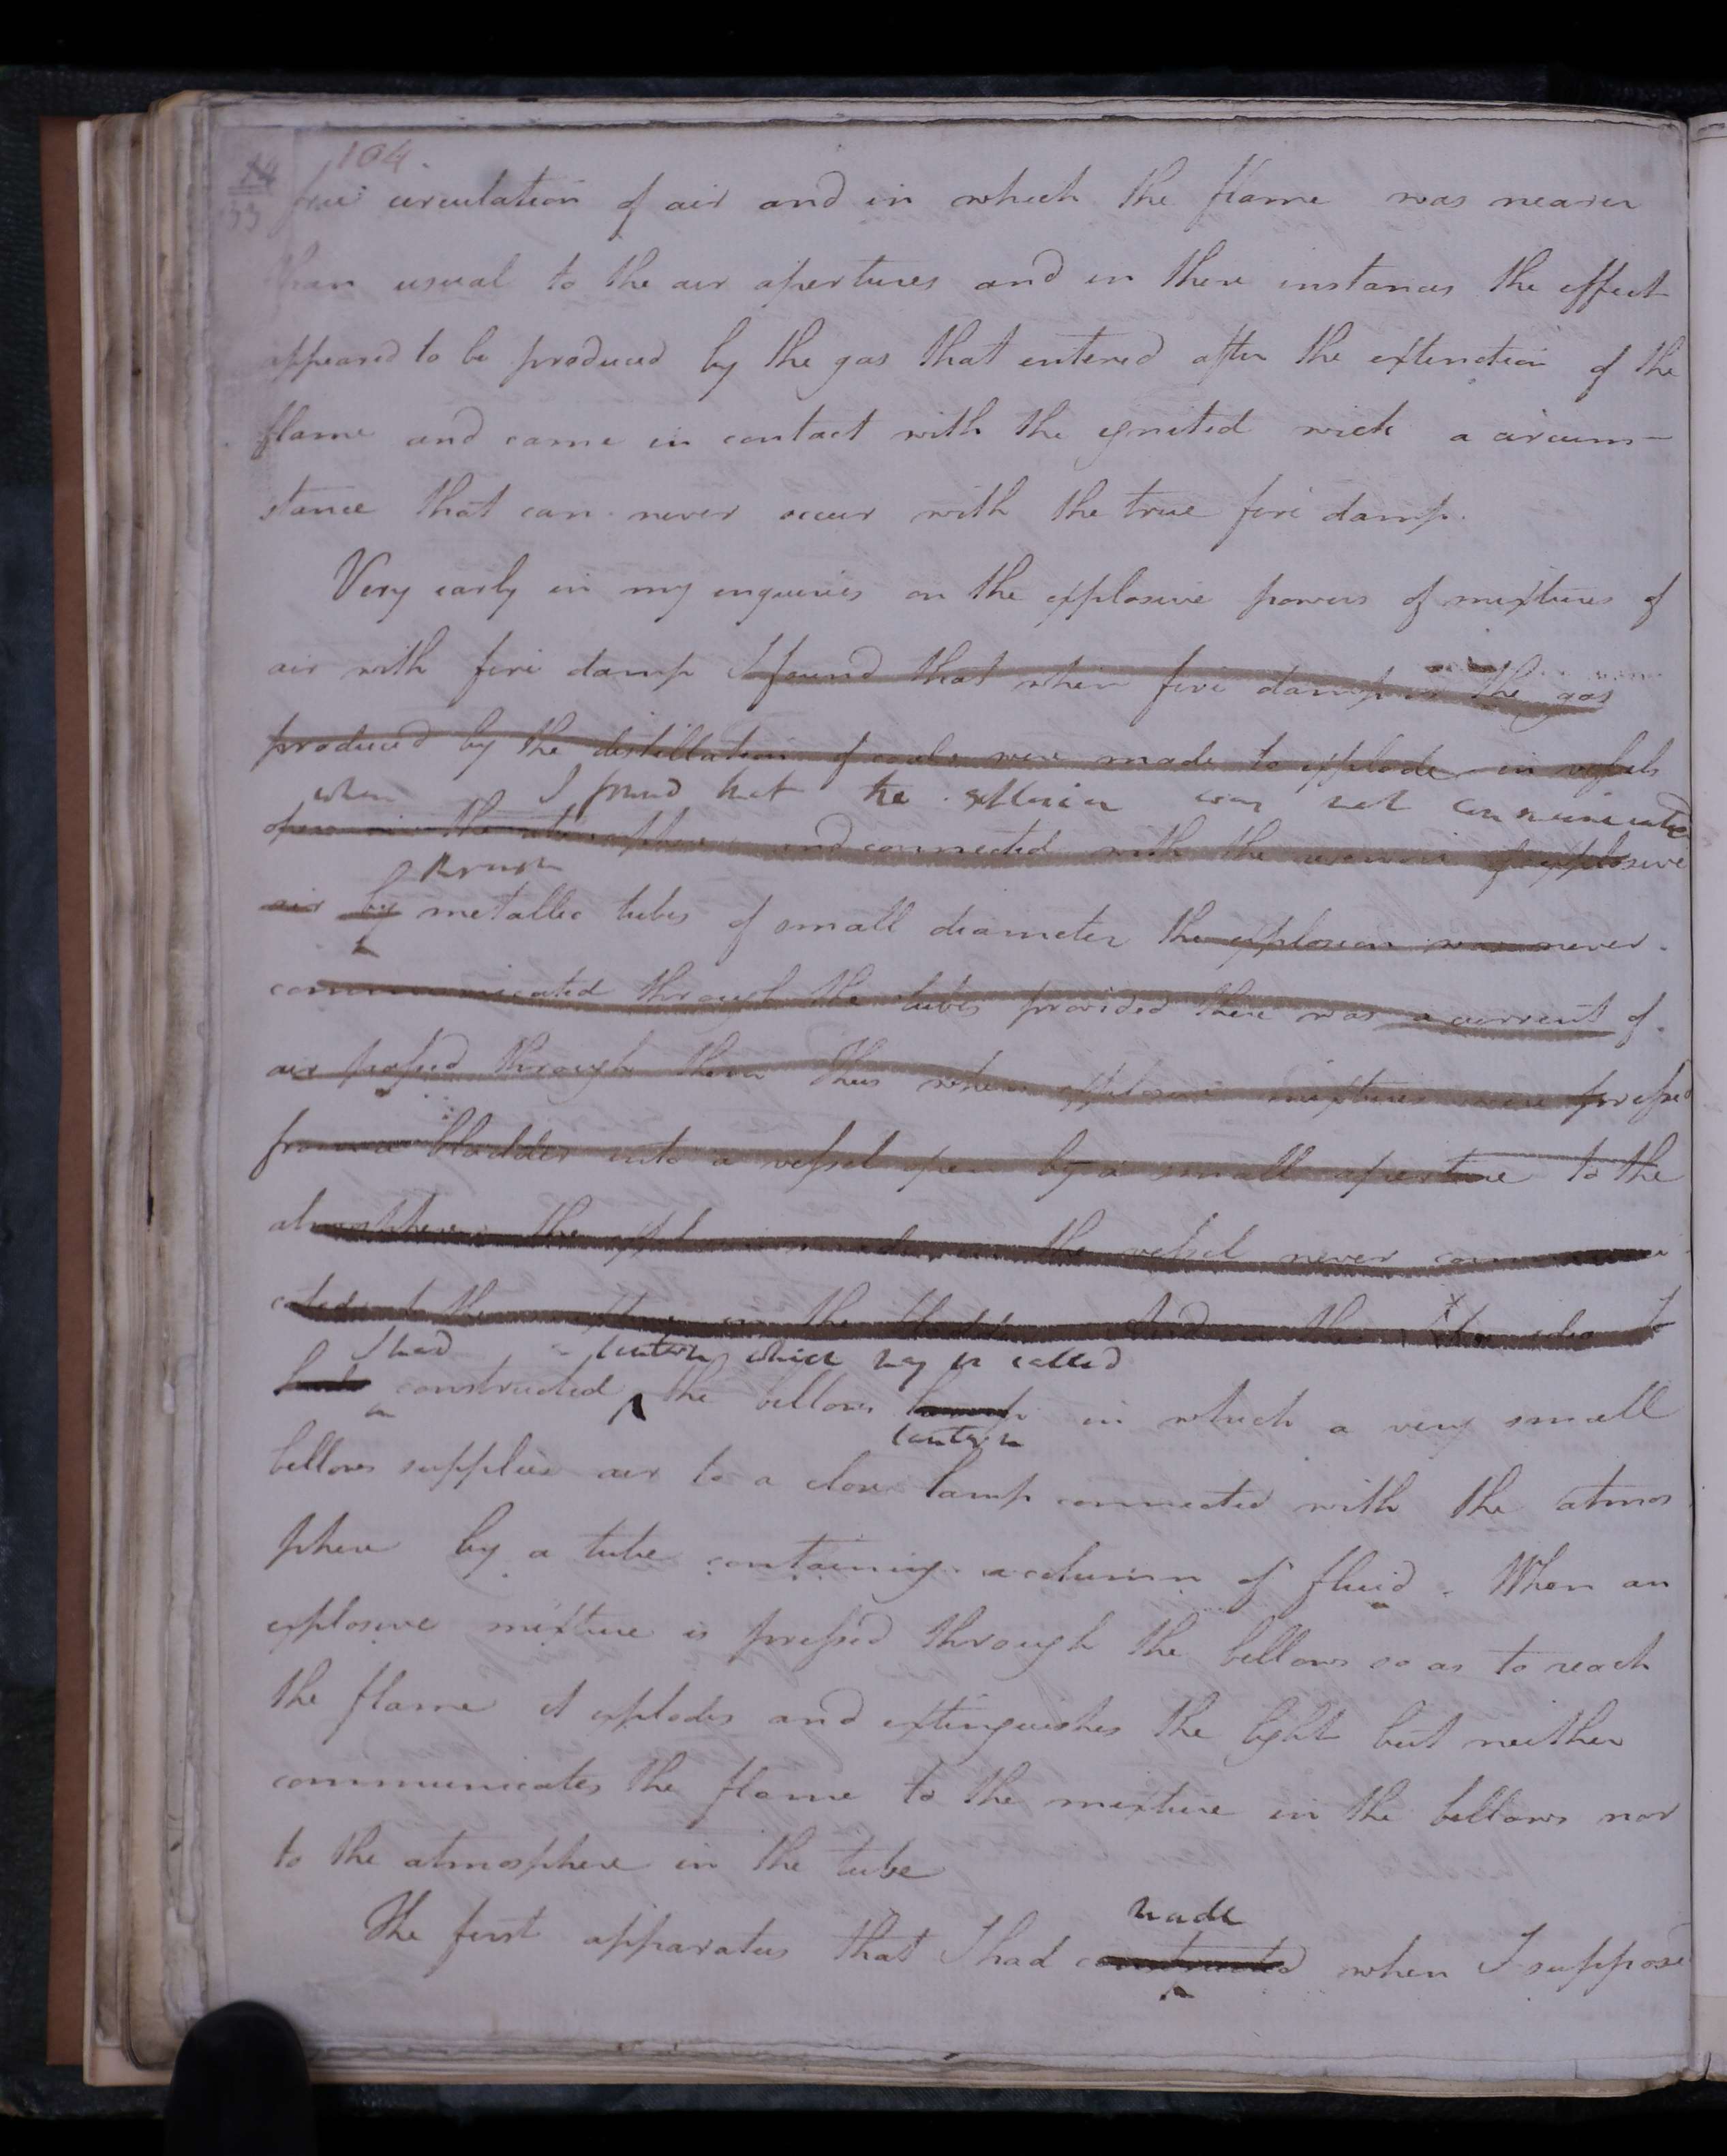 104.
14
33
free circulation of air and in which the flame was nearer
than usual to the air apertures and in these instances the effect
appeared to be produced by the gas that entered after the extinction of the
flame and came in contact with the ignited wick a circum-
stance that can never occur with the true fire damp.
Very early in my enquiries on the explosive powers of mixtures of
air with fire damp I found that when fire damp or the gas
produced by the distillation of coals were made to explode in vessels
when I found that the explosion was not communicated
open in the atmosphere and connected with the reservoir of explosive
through
air by metallic tubes of small diameter the explosion was never
communicated through the tubes provided there was a current of
air passed through them Thus when explosive mixtures were pressed
from a bladder into a vessel open by a small aperture to the
atmosphere the explosion made in the vessel never communi
cated to the mixture in the bladder And on this idea I
I had a lantern which may be called
had constructed the bellows lamp in which a very small
lantern
bellows supplies air to a close lamp connected with the atmos
phere by a tube containing a column of fluid. When an
explosive mixture is pressed through the bellows so as to reach
the flame it explodes and extinguishes the light but neither
communicates the flame to the mixture in the bellows nor
to the atmosphere in the tube
made
The first apparatus that I had constructed when I suppose